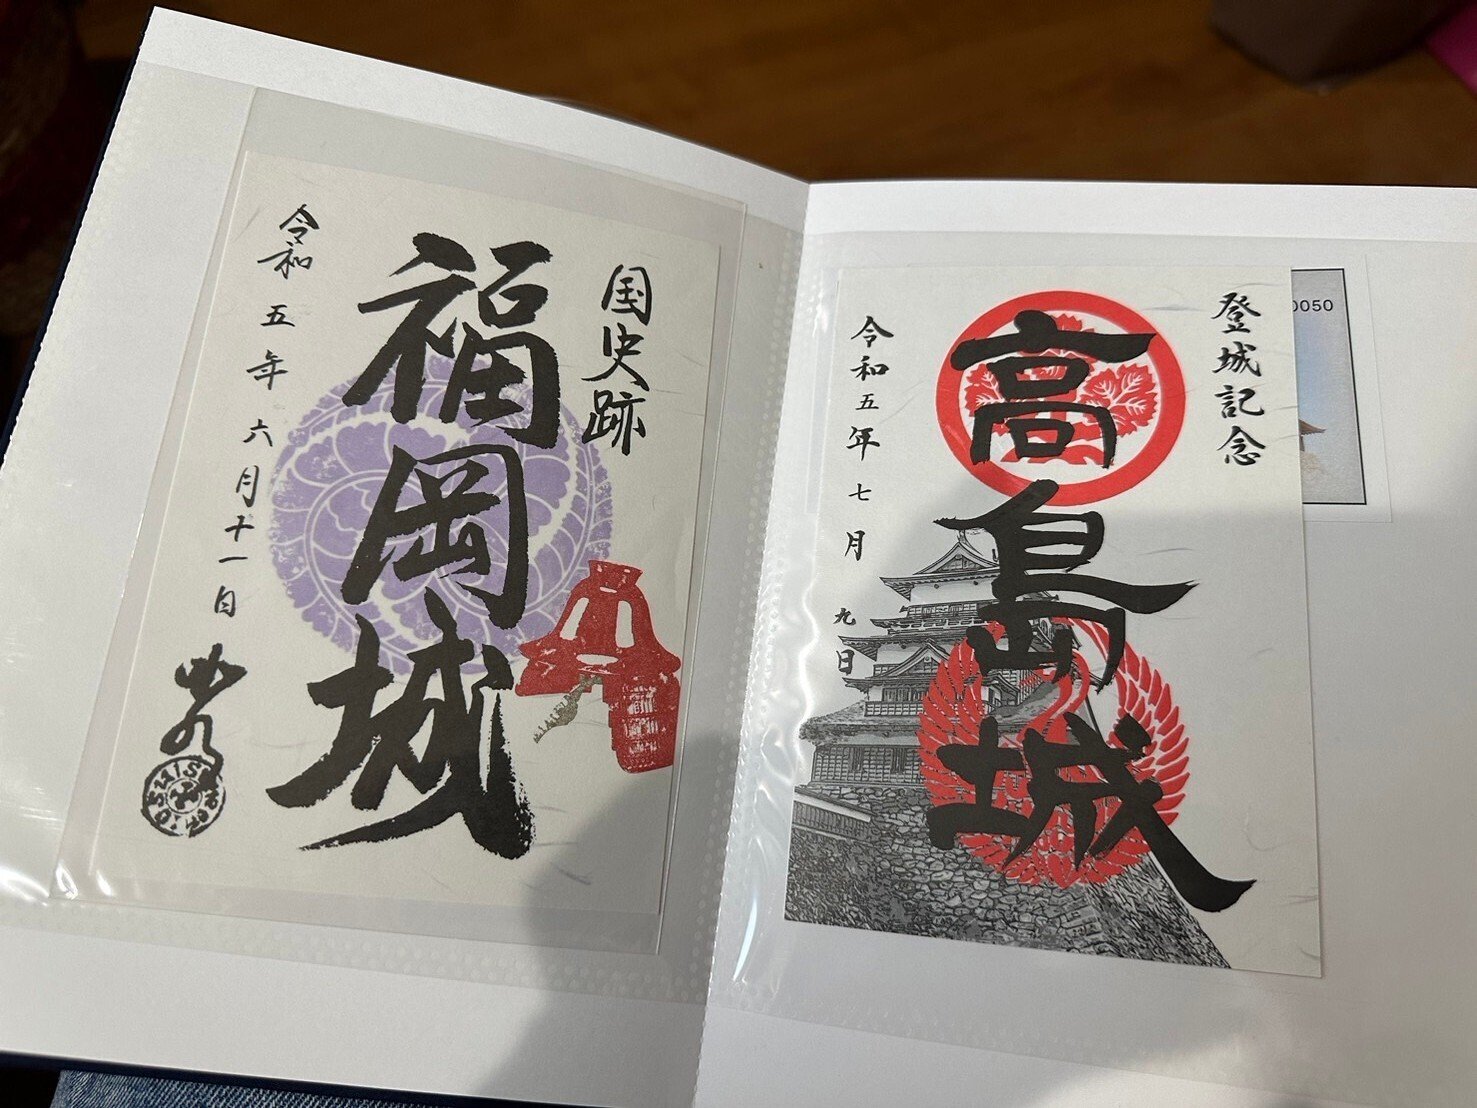 国史跡
福岡城
令和五年六月十一日
登城記念
高島城
令和五年七月九日
0050